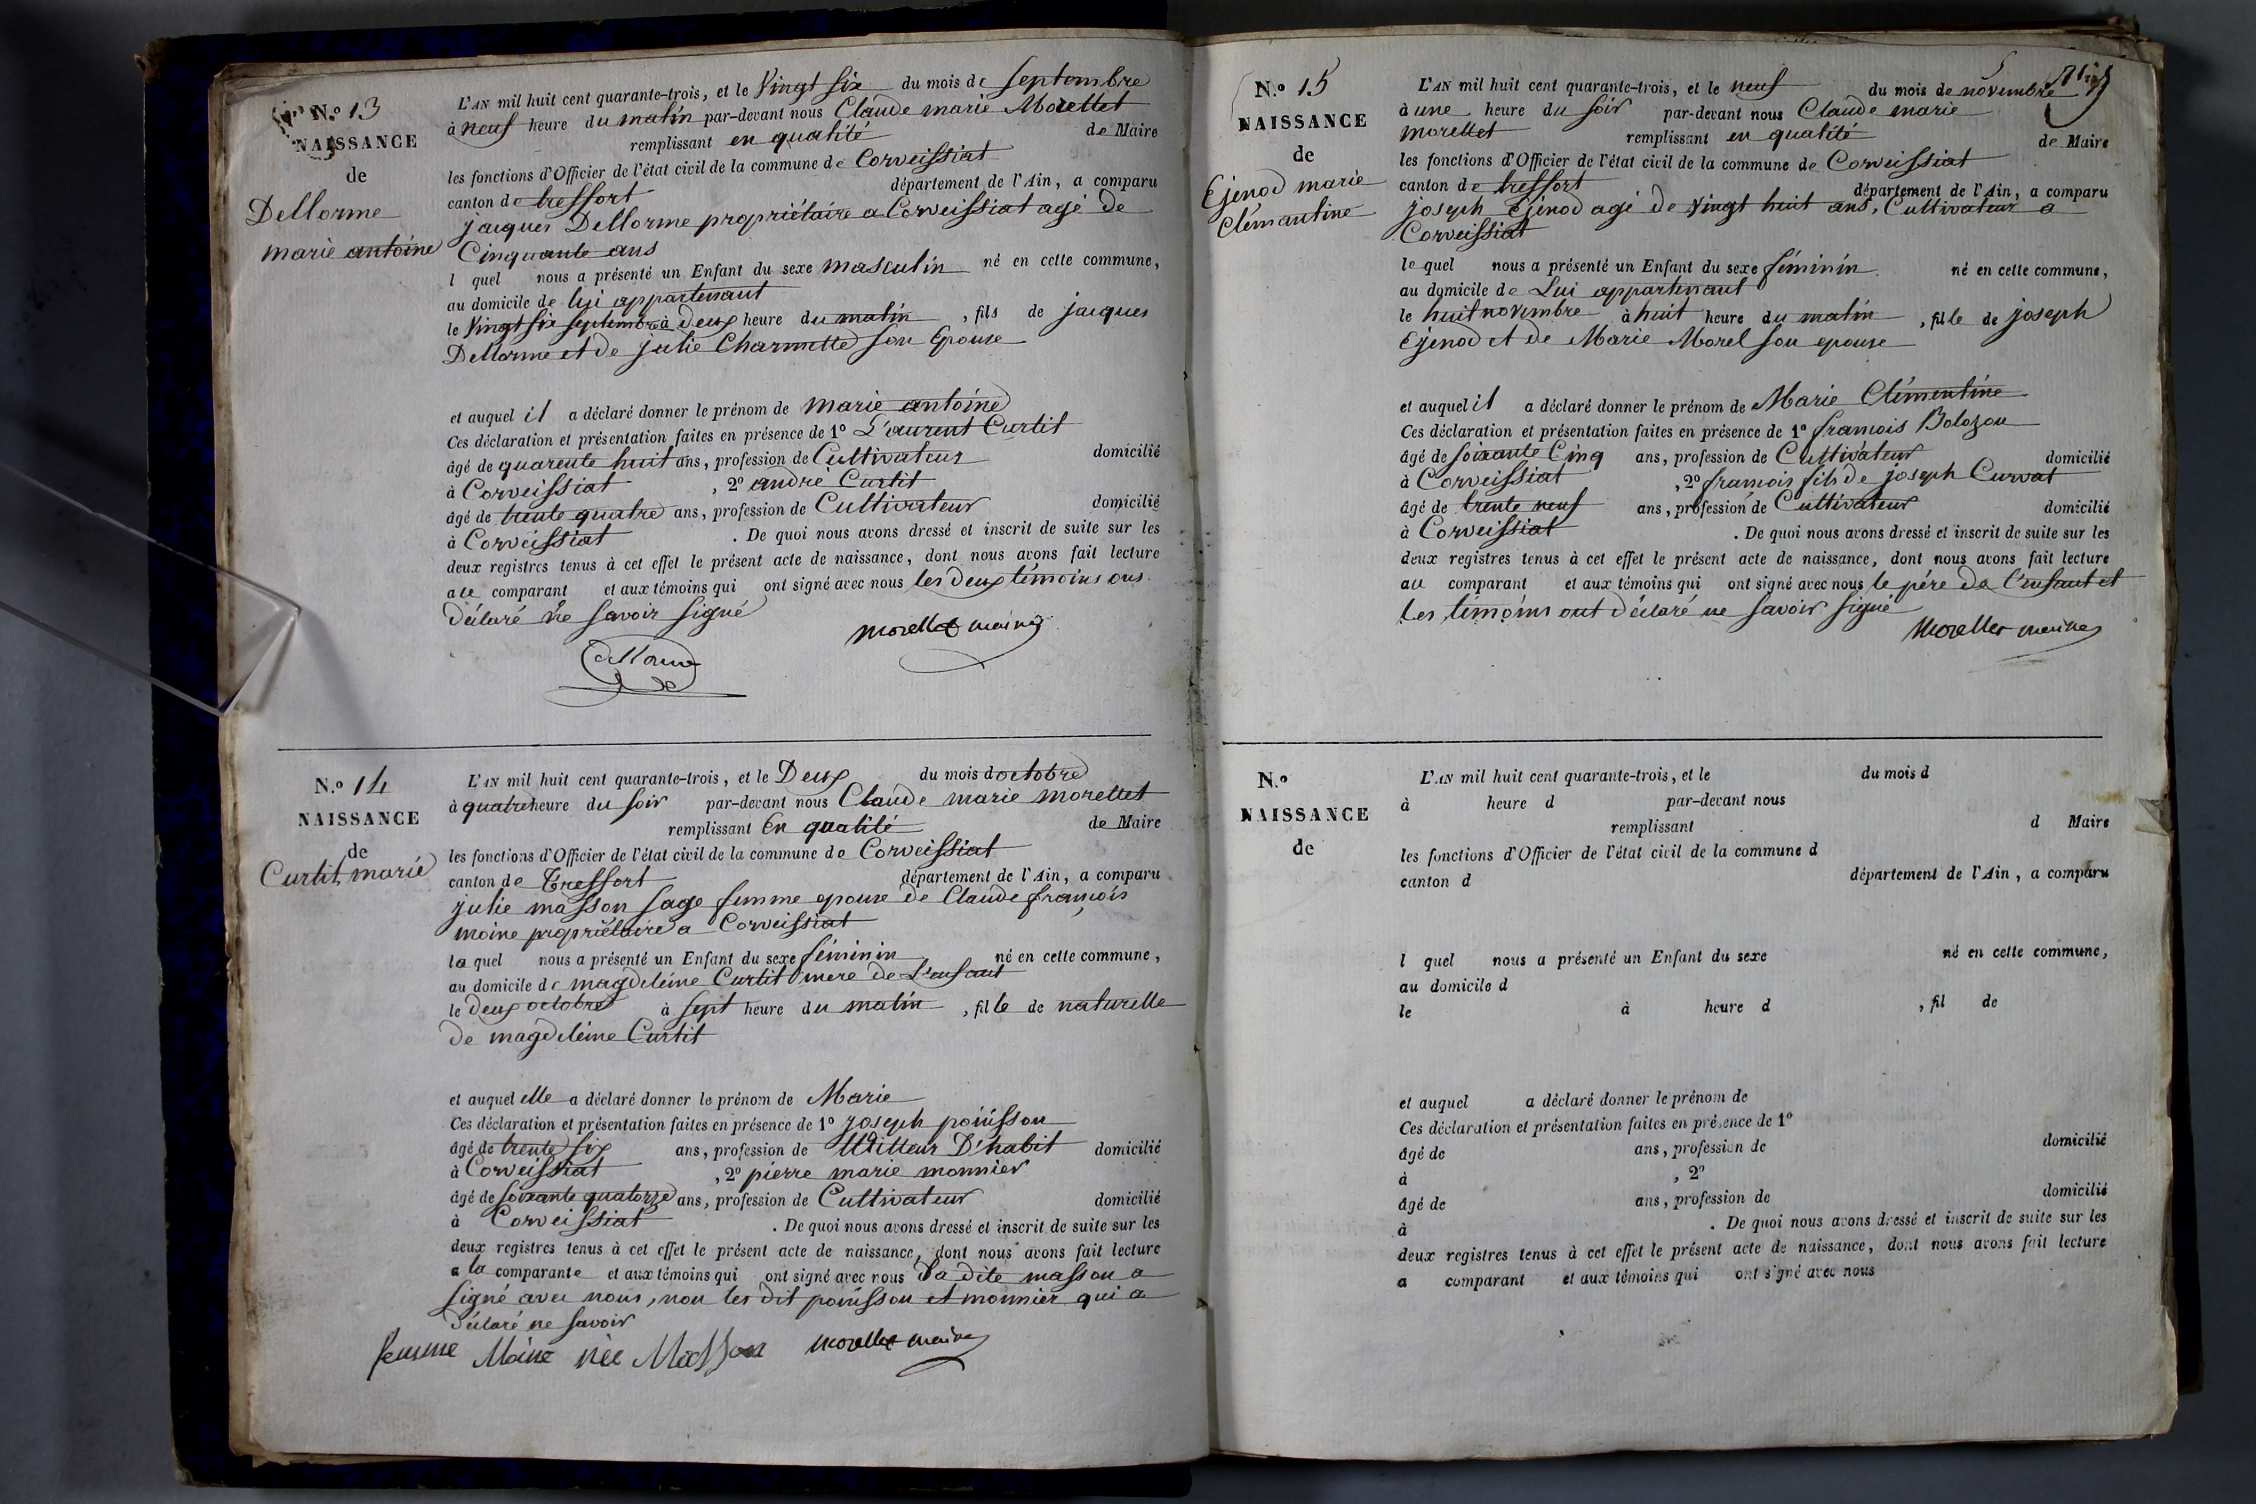 N.º 13
NAISSANCE
de
Dellorme
marie antoine
L'AN mil huit cent quarante-trois, et le Vingt six du mois de Septembre
à neuf heure du matin par-devant nous Claude marie Morellet
remplissant en qualité de Maire
les fonctions d'Officier de l'état civil de la commune de Corveissiat
canton de treffort département de l'Ain, a comparu
jacques Dellorme propriétaire a Corveissiat agé de
Cinquante ans
l quel nous a présenté un Enfant du sexe masculin né en cette commune,
au domicile de lui appartenant
le Vingt six septembre à deux heure du matin, fils de jacques
Dellorme et de julie Charmette son Epouse
et auquel il a déclaré donner le prénom de marie antoine
Ces déclaration et présentation faites en présence de 1º Laurent Curtit
âgé de quarente huit ans, profession de Cultivateur domicilié
à Corveissiat, 2º andré Curtit
âgé de trente quatre ans, profession de Cultivateur domicilié
à Corveissiat. De quoi nous avons dressé et inscrit de suite sur les
deux registres tenus à cet effet le présent acte de naissance, dont nous avons fait lecture
au comparant et aux témoins qui ont signé avec nous les deux témoins ons
déclaré ne savoir signé
morellet maire
N.º 14
NAISSANCE
de
Curtit marie
L'AN mil huit cent quarante-trois, et le Deux du mois d octobre
à quatre heure du soir par-devant nous Claude marie morellet
remplissant En qualité de Maire
les fonctions d'Officier de l'état civil de la commune de Corveissiat
canton de Treffort département de l'Ain, a comparu
julie masson sage femme epouse de Claude françois
moine propriétaire a Corveissiat
la quel nous a présenté un Enfant du sexe féminin né en cette commune,
au domicile de magdeleine Curtit mere de L'enfant
le deux octobre à sept heure du matin, fille de naturelle
de magdeleine Curtit
et auquel elle a déclaré donner le prénom de Marie
Ces déclaration et présentation faites en présence de 1º joseph poinsson
âgé de trente six ans, profession de tailleur D'habit domicilié
à Corveissiat, 2º pierre marie monnier
âgé de soixante quatorze ans, profession de Cultivateur domicilié
à Corveissiat. De quoi nous avons dressé et inscrit de suite sur les
deux registres tenus à cet effet le présent acte de naissance, dont nous avons fait lecture
a la comparante et aux témoins qui ont signé avec nous la dite masson a
signé avec nous, non les dit poinsson et monnier qui a
déclaré ne savoir
femme Moine née Masson morellet maire
N.º 15
NAISSANCE
de
Ejenod marie
Clémantine
L'AN mil huit cent quarante-trois, et le neuf du mois de novembre
à une heure du soir par-devant nous Claude marie
morellet remplissant en qualité de Maire
les fonctions d'Officier de l'état civil de la commune de Corveissiat
canton de treffort département de l'Ain, a comparu
joseph Ejenod agé de vingt huit ans, Cultivateur a
Corveissiat
le quel nous a présenté un Enfant du sexe féminin né en cette commune,
au domicile de Lui appartenant
le huit novembre à huit heure du matin, fille de joseph
Ejenod et de Marie Morel son epouse
et auquel il a déclaré donner le prénom de Marie Clémentine
Ces déclaration et présentation faites en présence de 1º françois Bolozon
âgé de soixante Cinq ans, profession de Cultivateur domicilié
à Corveissiat, 2º françois fils de joseph Curvat
âgé de trente neuf ans, profession de Cultivateur domicilié
à Corveissiat. De quoi nous avons dressé et inscrit de suite sur les
deux registres tenus à cet effet le présent acte de naissance, dont nous avons fait lecture
au comparant et aux témoins qui ont signé avec nous le père de l'enfant et
les témoins ont déclaré ne savoir signé
Morellet maire
N.º
NAISSANCE
de
L'AN mil huit cent quarante-trois, et le du mois d
à heure d par-devant nous
remplissant d Maire
les fonctions d'Officier de l'état civil de la commune d
canton d département de l'Ain, a comparu
l quel nous a présenté un Enfant du sexe né en cette commune,
au domicile d
le à heure d, fil de
et auquel a déclaré donner le prénom de
Ces déclaration et présentation faites en présence de 1º
âgé de ans, profession de domicilié
à, 2º
âgé de ans, profession de domicilié
à. De quoi nous avons dressé et inscrit de suite sur les
deux registres tenus à cet effet le présent acte de naissance, dont nous avons fait lecture
a comparant et aux témoins qui ont signé avec nous